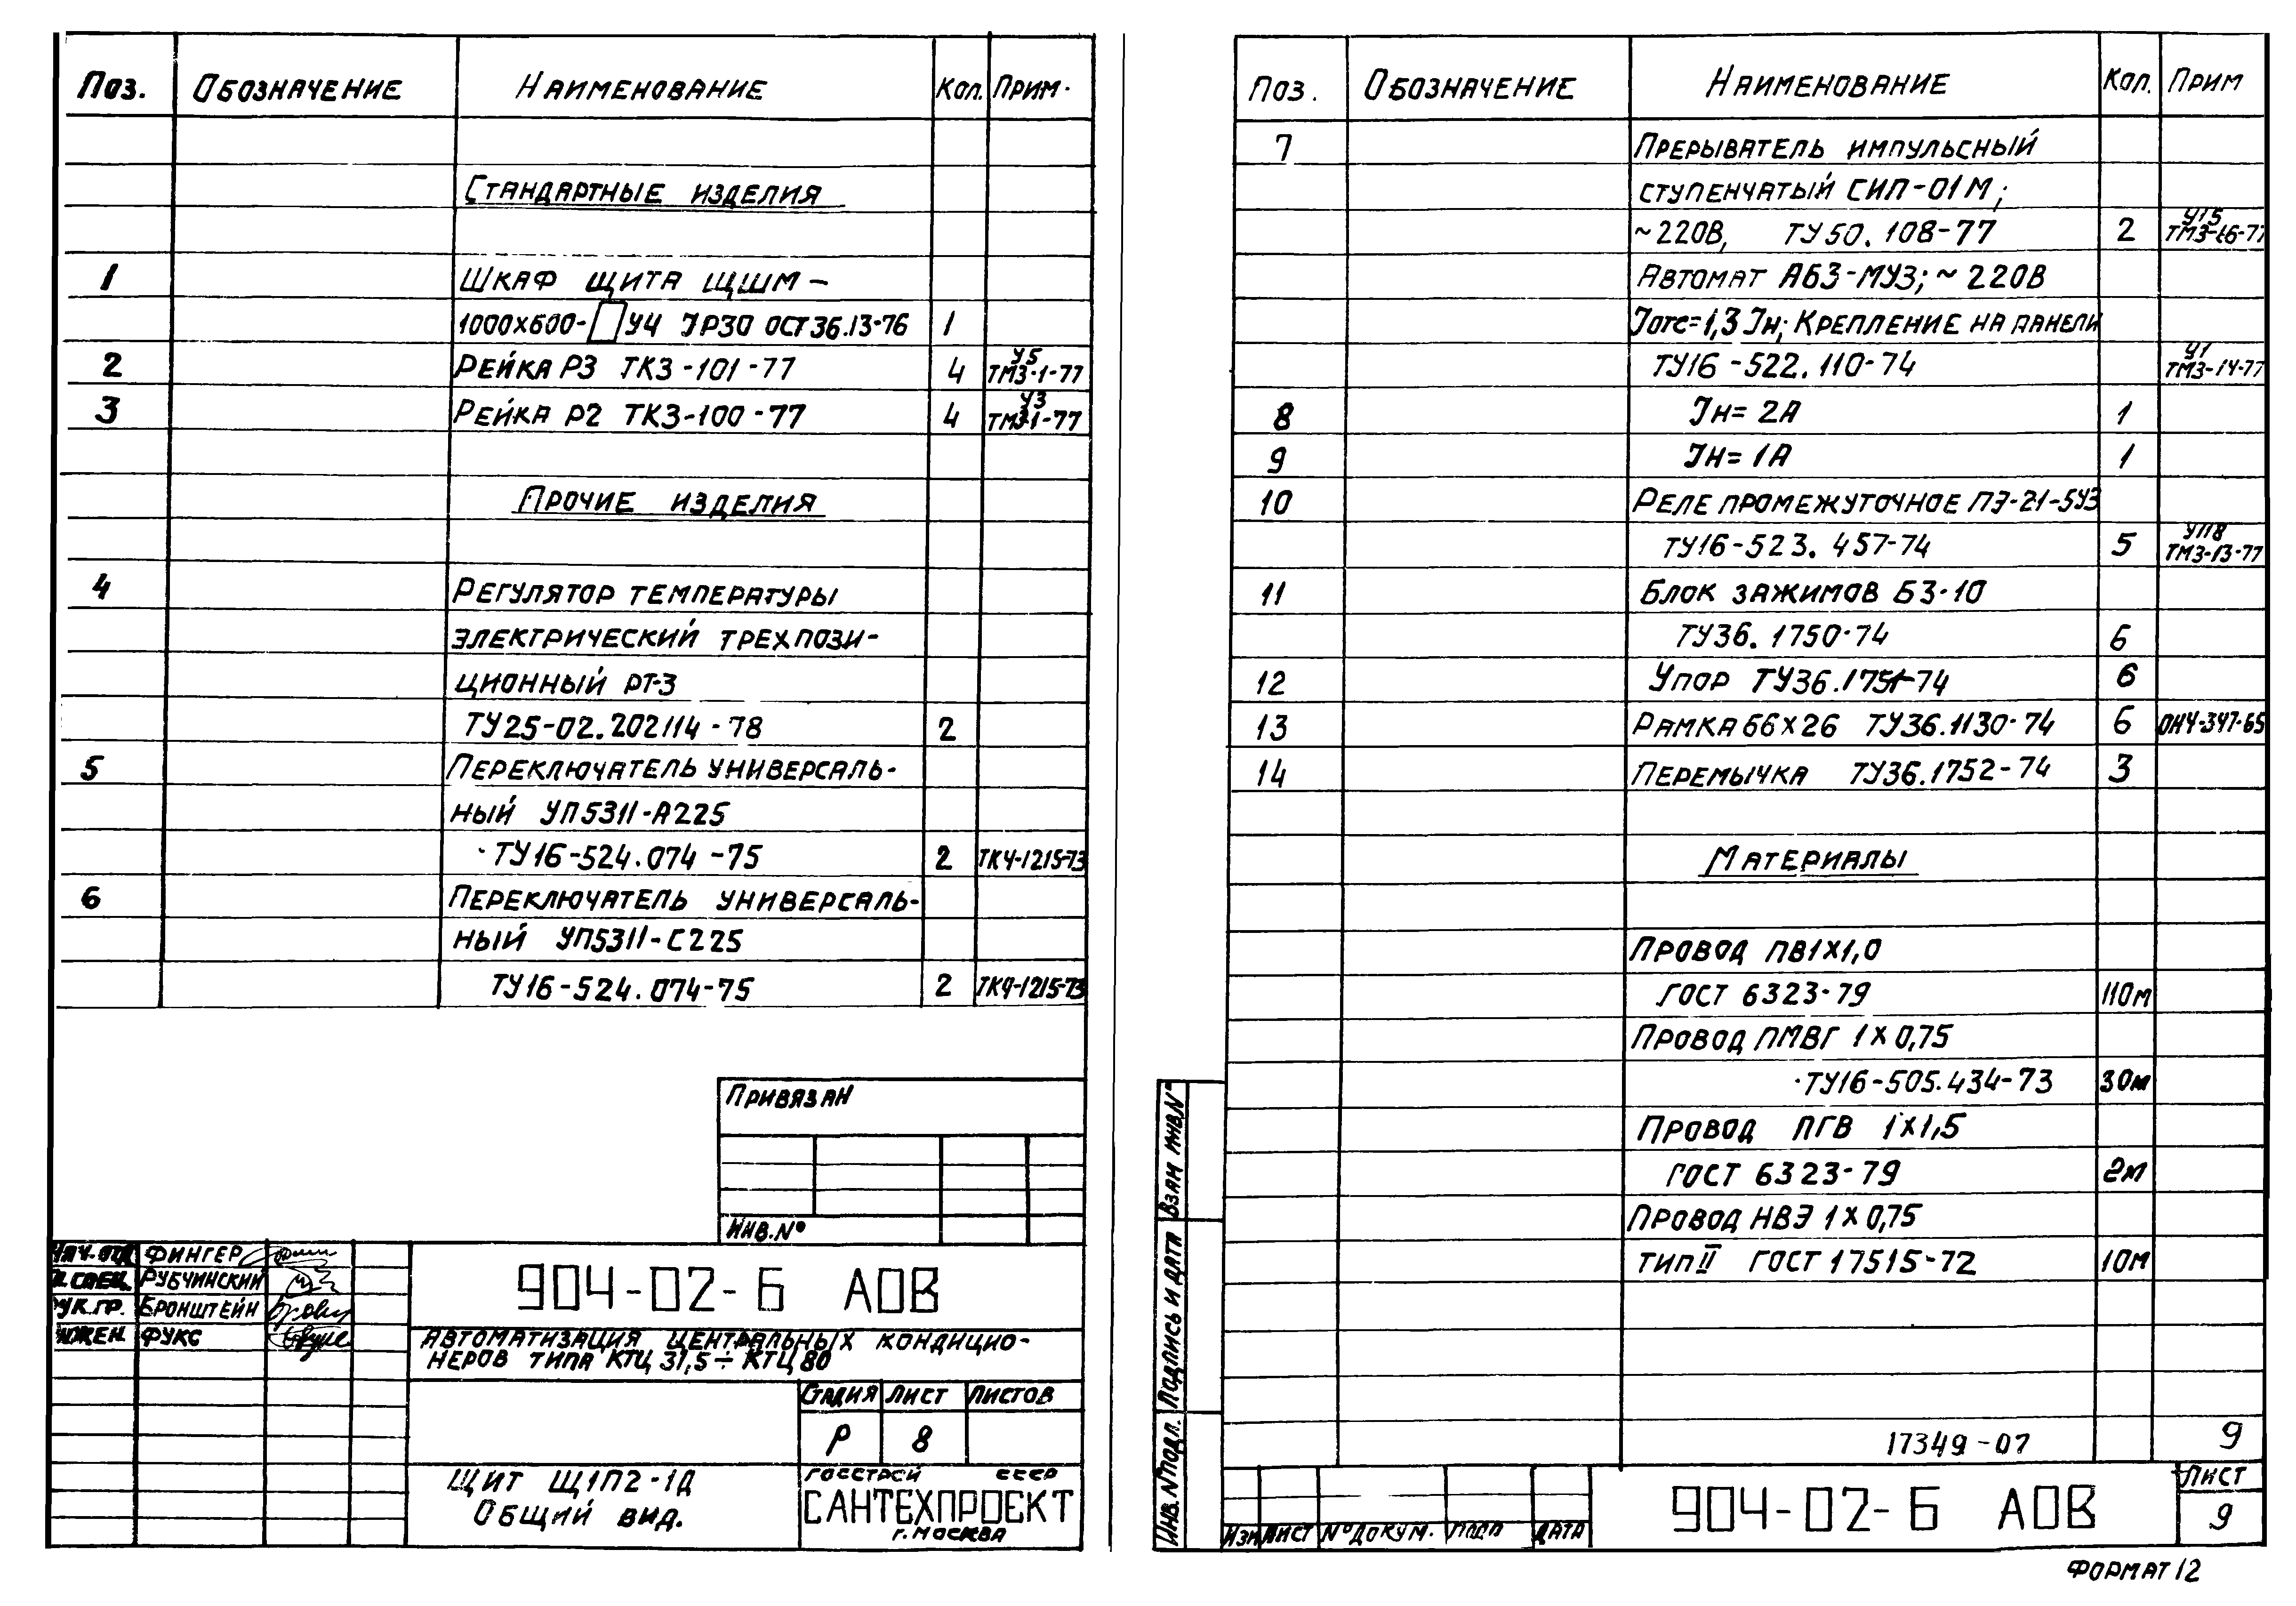 Поз. Обозначение Наименование Кол. Прим.
Стандартные изделия
1 Шкаф щита ЩШМ –
1000х600-□ У4 IP30 ОСТ36.13-76 1
2 Рейка Р3 ТК3-101-77 4 У5 ТМ3-1-77
3 Рейка Р2 ТК3-100-77 4 У3 ТМ3-1-77
Прочие изделия
4 Регулятор температуры
электрический трехпози-
ционный РТ-3
ТУ25-02.202114-78 2
5 Переключатель универсаль-
ный УП5311-А225
ТУ16-524.074-75 2 ТК4-1215-73
6 Переключатель универсаль-
ный УП5311-С225
ТУ16-524.074-75 2 ТК4-1215-73
Привязан
Инв.№
Нач. отд. Фингер
Гл. спец. Рубчинский
Рук. гр. Бронштейн
Инжен. Фукс
904-02-6 АОВ
Автоматизация центральных кондицио-
неров типа КТЦ 31,5÷КТЦ 80
Стадия Лист Листов
Р 8
Щит Щ1П2-1Д
Общий вид.
Госстрой СССР
САНТЕХПРОЕКТ
г. Москва
Поз. Обозначение Наименование Кол. Прим
7 Прерыватель импульсный
ступенчатый СИП-01М;
~220В, ТУ50.108-77 2 У15 ТМ3-16-77
Автомат АБ3-МУ3; ~220В
Iотс=1,3 Iн; Крепление на панели
ТУ16-522.110-74 У1 ТМ3-14-77
8 Iн=2А 1
9 Iн=1А 1
10 Реле промежуточное ПЭ-21-5У3
ТУ16-523.457-74 5 УП8 ТМ3-13-77
11 Блок зажимов БЗ-10
ТУ36.1750-74 6
12 Упор ТУ36.1751-74 6
13 Рамка 66х26 ТУ36.1130-74 6 ОН4-347-65
14 Перемычка ТУ36.1752-74 3
Материалы
Провод ПВ1х1,0
ГОСТ 6323-79 110м
Провод ПМВГ 1х0,75
ТУ16-505.434-73 30м
Провод ПГВ 1х1,5
ГОСТ 6323-79 2м
Провод НВЭ 1х0,75
тип II ГОСТ 17515-72 10м
17349-07 9
Взам инв.№
Подпись и дата
Инв.№ подл.
Изм Лист № докум. Подп Дата
904-02-6 АОВ
Лист
9
Формат 12